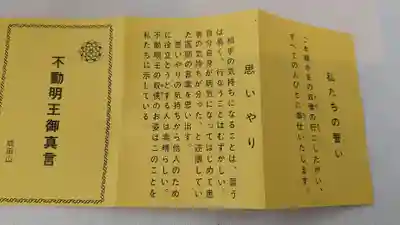 私たちの誓い
この経や念の教えの行にしたがい、
すべての人びとに奉仕いたします。
思いやり
相手の気持ちになることは、言う
は易く、行なうことはむずかしい。
自分自身が病気になってはじめて患
者の気持ちが分った、と述懐してい
た医師の言葉を思い出す。
思いやりの気持ちから他人のため
に役立とうとする人は素晴らしい。
不動明王の奴僕のお姿はこのことを
私たちに示している
不動明王御真言
成田山